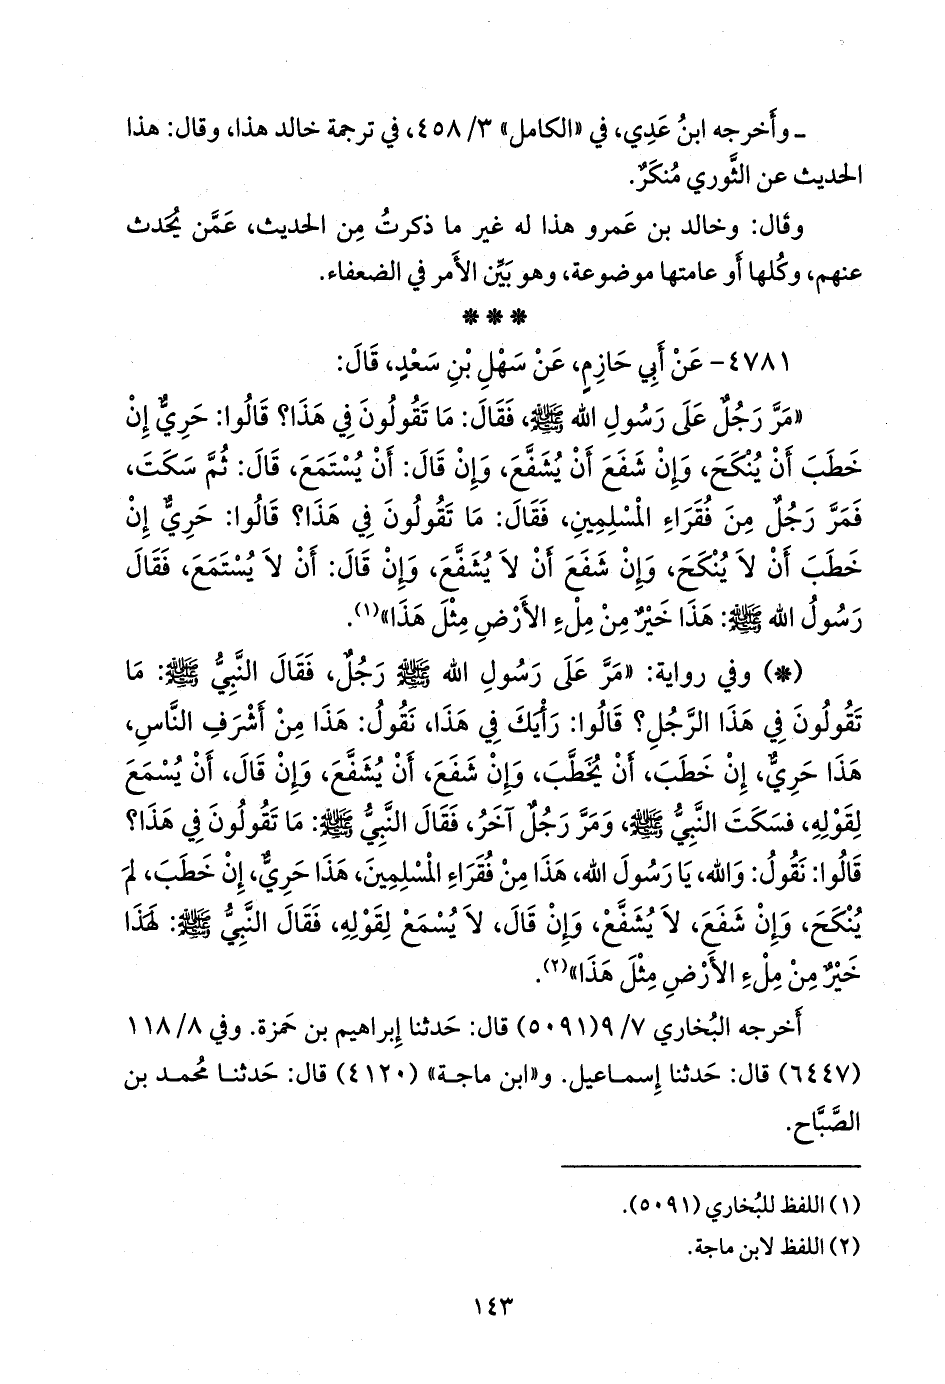 ـ وأَخرجه ابنُ عَدِي، في «الكامل» ٣/ ٤٥٨، في ترجمة خالد هذا، وقال: هذا
الحديث عن الثَّوري مُنكَرٌ.
وقال: وخالد بن عَمرو هذا له غير ما ذكرتُ مِن الحديث، عَمَّن يُحَدث
عنهم، وكُلها أَو عامتها موضوعة، وهو بَيِّن الأَمر في الضعفاء.
* * *
٤٧٨١ - عَنْ أَبِي حَازِمٍ، عَنْ سَهْلِ بْنِ سَعْدٍ، قَالَ:
«مَرَّ رَجُلٌ عَلَى رَسُولِ الله ﷺ، فَقَالَ: مَا تَقُولُونَ فِي هَذَا؟ قَالُوا: حَرِيٌّ إِنْ
خَطَبَ أَنْ يُنْكَحَ، وَإِنْ شَفَعَ أَنْ يُشَفَّعَ، وَإِنْ قَالَ: أَنْ يُسْتَمَعَ، قَالَ: ثُمَّ سَكَتَ،
فَمَرَّ رَجُلٌ مِنَ فُقَرَاءِ الْمُسْلِمِينِ، فَقَالَ: مَا تَقُولُونَ فِي هَذَا؟ قَالُوا: حَرِيٌّ إِنْ
خَطَبَ أَنْ لاَ يُنْكَحَ، وَإِنْ شَفَعَ أَنْ لاَ يُشَفَّعَ، وَإِنْ قَالَ: أَنْ لاَ يُسْتَمَعَ، فَقَالَ
رَسُولُ الله ﷺ: هَذَا خَيْرٌ مِنْ مِلْءِ الأَرْضِ مِثْلَ هَذَا»(١).
(*) وفي رواية: «مَرَّ عَلَى رَسُولِ الله ﷺ رَجُلٌ، فَقَالَ النَّبِيُّ ﷺ: مَا
تَقُولُونَ فِي هَذَا الرَّجُلِ؟ قَالُوا: رَأْيَكَ فِي هَذَا، نَقُولُ: هَذَا مِنْ أَشْرَفِ النَّاسِ،
هَذَا حَرِيٌّ، إِنْ خَطَبَ، أَنْ يُخَطَّبَ، وَإِنْ شَفَعَ، أَنْ يُشَفَّعَ، وَإِنْ قَالَ، أَنْ يُسْمَعَ
لِقَوْلِهِ، فسَكَتَ النَّبِيُّ ﷺ، وَمَرَّ رَجُلٌ آخَرُ، فَقَالَ النَّبِيُّ ﷺ: مَا تَقُولُونَ فِي هَذَا؟
قَالُوا: نَقُولُ: وَالله، يَا رَسُولَ الله، هَذَا مِنْ فُقَرَاءِ الْمُسْلِمِينَ، هَذَا حَرِيٌّ، إِنْ خَطَبَ، لَمْ
يُنْكَحْ، وَإِنْ شَفَعَ، لاَ يُشَفَّعْ، وَإِنْ قَالَ، لاَ يُسْمَعْ لِقَوْلِهِ، فَقَالَ النَّبِيُّ ﷺ: لَهَذَا
خَيْرٌ مِنْ مِلْءِ الأَرْضِ مِثْلَ هَذَا»(٢).
أَخرجه البُخاري ٧/ ٩(٥٠٩١) قال: حَدثنا إِبراهيم بن حَمزة. وفي ٨/ ١١٨
(٦٤٤٧) قال: حَدثنا إِسماعيل. و«ابن ماجة» (٤١٢٠) قال: حَدثنا مُحمد بن
الصَّبَّاح.
(١) اللفظ للبُخاري (٥٠٩١).
(٢) اللفظ لابن ماجة.
١٤٣